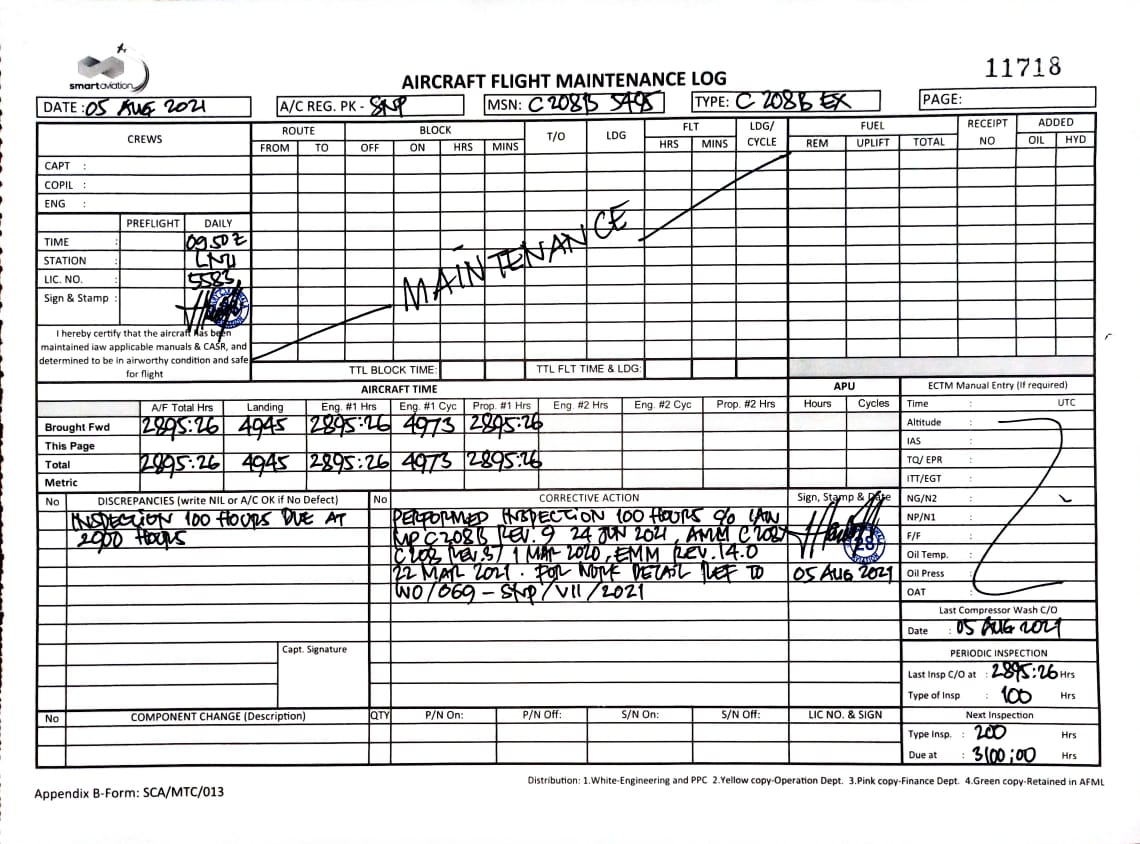 smartaviation
AIRCRAFT FLIGHT MAINTENANCE LOG
11718
DATE : 05 AUG 2021
A/C REG. PK - SNP
MSN: C208B 5495
TYPE: C 208B EX
PAGE:
CREWS
ROUTE
BLOCK
T/O
LDG
FLT
LDG/
CYCLE
FUEL
RECEIPT
NO
ADDED
FROM TO OFF ON HRS MINS HRS MINS REM UPLIFT TOTAL OIL HYD
CAPT :
COPIL :
ENG :
PREFLIGHT DAILY
TIME : 0950 Z
STATION :
LIC. NO. : 5583
Sign & Stamp :
MAINTENANCE
I hereby certify that the aircraft has been
maintained iaw applicable manuals & CASR, and
determined to be in airworthy condition and safe
for flight
TTL BLOCK TIME: TTL FLT TIME & LDG:
AIRCRAFT TIME
APU
ECTM Manual Entry (If required)
A/F Total Hrs Landing Eng. #1 Hrs Eng. #1 Cyc Prop. #1 Hrs Eng. #2 Hrs Eng. #2 Cyc Prop. #2 Hrs Hours Cycles
Time : UTC
Brought Fwd 2895:26 4945 2895:26 4973 2895:26
This Page
Total 2895:26 4945 2895:26 4973 2895:26
Metric
Altitude :
IAS :
TQ/ EPR :
ITT/EGT :
NG/N2 :
NP/N1 :
F/F :
Oil Temp. :
Oil Press :
OAT :
No DISCREPANCIES (write NIL or A/C OK if No Defect) No CORRECTIVE ACTION Sign, Stamp & Date
INSPECTION 100 HOURS DUE AT
2900 HOURS
PERFORMED INSPECTION 100 HOURS C/O IAW
MP C208B REV. 9 24 JUN 2021, AMM C208/
C208 REV.37 1 MAR 2020, EMM REV.14.0
22 MAR 2021. FOR MORE DETAIL REF TO
WO/069 - SNP/VII/2021
28
05 AUG 2021
Capt. Signature
Last Compressor Wash C/O
Date : 05 AUG 2021
PERIODIC INSPECTION
Last Insp C/O at : 2895:26 Hrs
Type of Insp : 100 Hrs
Next Inspection
Type Insp. : 200 Hrs
Due at : 3100:00 Hrs
No COMPONENT CHANGE (Description) QTY P/N On: P/N Off: S/N On: S/N Off: LIC NO. & SIGN
Distribution: 1.White-Engineering and PPC 2.Yellow copy-Operation Dept. 3.Pink copy-Finance Dept. 4.Green copy-Retained in AFML
Appendix B-Form: SCA/MTC/013